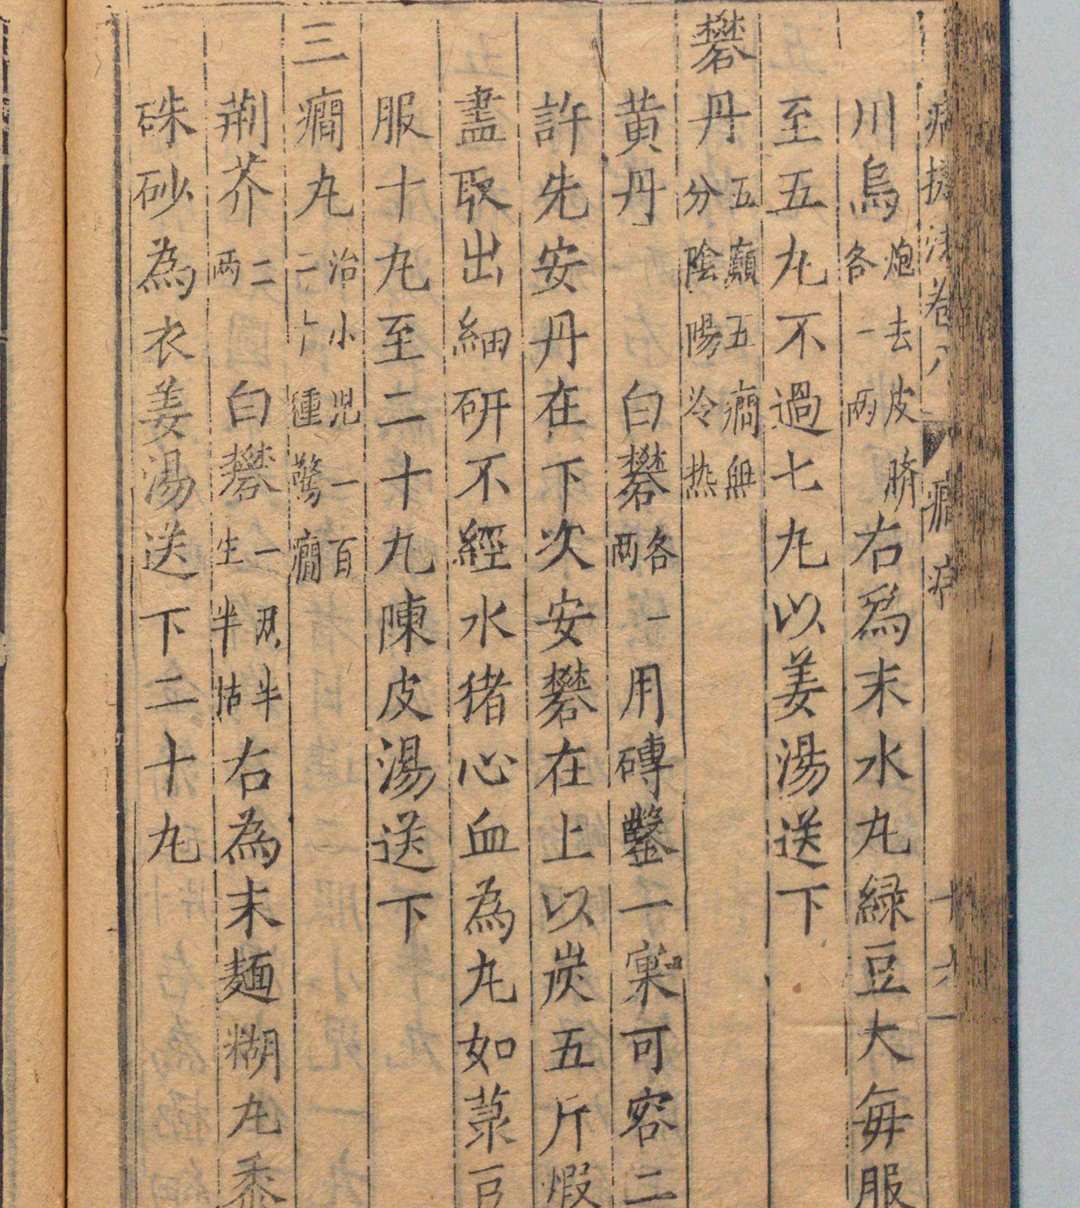 卷八
川烏炮去皮臍各一两右為末水丸綠豆大每服
至五丸不過七丸以姜湯送下
礬丹五癲五癎無分陰陽冷热
黄丹 白礬各一两用磚鑿一窠可容二
許先安丹在下次安礬在上以炭五斤煆
盡取出細研不經水猪心血為丸如菉豆
服十丸至二十丸陳皮湯送下
三癎丸治小児一百二十種驚癎
荆芥二两 白礬一两半生半枯右為末麺糊丸黍
硃砂為衣姜湯送下二十丸